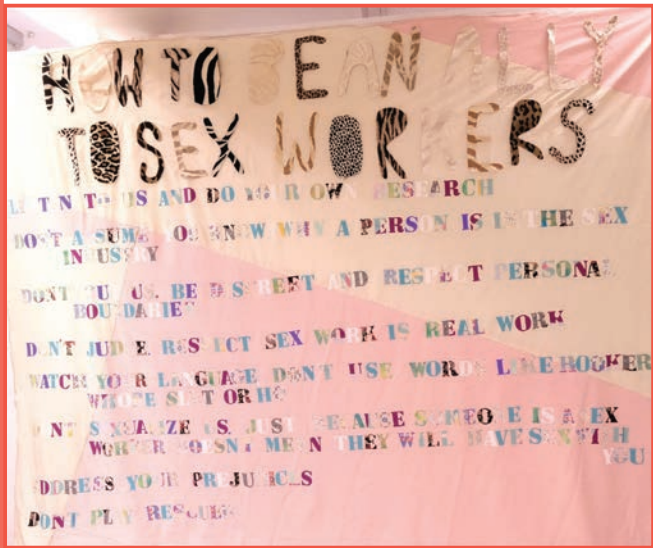 HOW TO BE AN ALLY
TO SEX WORKERS
LISTEN TO US AND DO YOUR OWN RESEARCH
DON'T ASSUME YOU KNOW WHY A PERSON IS IN THE SEX
INDUSTRY
DONT OUT US. BE DISCREET AND RESPECT PERSONAL
BOUNDARIES
DON'T JUDGE. RESPECT SEX WORK IS REAL WORK
WATCH YOUR LANGUAGE DON'T USE WORDS LIKE HOOKER
WHORE SLUT OR HO
DONT SEXUALIZE US. JUST BECAUSE SOMEONE IS A SEX
WORKER DOESNT MEAN THEY WILL HAVE SEX WITH
YOU
ADDRESS YOUR PREJUDICES
DONT PLAY RESCUER